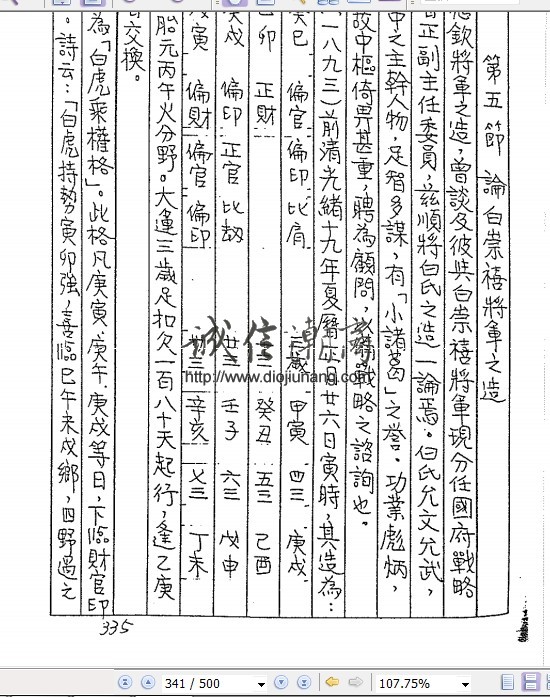 第五節 論白崇禧將軍之造
欽將軍之造，曾談及彼與白崇禧將軍現分任國府戰略
正副主任委員，茲順將白氏之造一論焉。白氏允文允武，
中之主幹人物，足智多謀，有「小諸葛」之譽．功業彪炳，
故中樞倚畀甚重，聘為顧問，以為戰略之諮詢也。
一八九三）前清光緒十九年夏曆 廿六日寅時，其造為：
癸巳 偏官 偏印 比肩 三歲 甲寅 四三 庚戌
己卯 正財 癸丑 五三 己酉
戌 偏印 正官 比劫 廿三 壬子 六三 戊申
寅 偏財 偏官 偏印 卅三 辛亥 七三 丁未
胎元丙午火分野。大運三歲足扣欠一百八十天起行，逢乙庚
交換。
為「白虎乘權格」。此格凡庚寅、庚午、庚戌等日，下臨財官印
。詩云：「白虎持勢寅卯強，喜臨巳午未戌鄉，四野過之
335
誠信
http://www.diojiuhang.com
341 / 500
107.75%